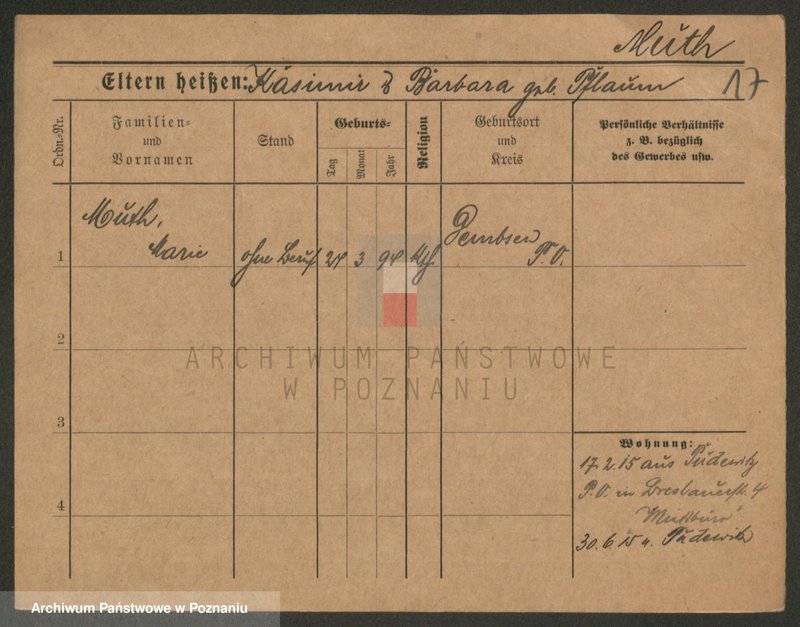 Muth
17
Eltern heißen: Kasimir & Barbara geb. Pflaum
Ordn.-Nr.
Familien-
und
Vornamen
Stand
Geburts-
Tag
Monat
Jahr
Religion
Geburtsort
und
Kreis
Persönliche Verhältnisse
z. B. bezüglich
des Gewerbes usw.
Muth,
1 Marie ohne Beruf 24 3 94 kth. Dembsen
P. O.
2
ARCHIWUM PAŃSTWOWE
W POZNANIU
3
Wohnung:
17.2.15 aus Pudewitz
P. O. in Breslauerstr. 4
"Mietbüro"
4
30.6.15 n. Pudewitz
Archiwum Państwowe w Poznaniu